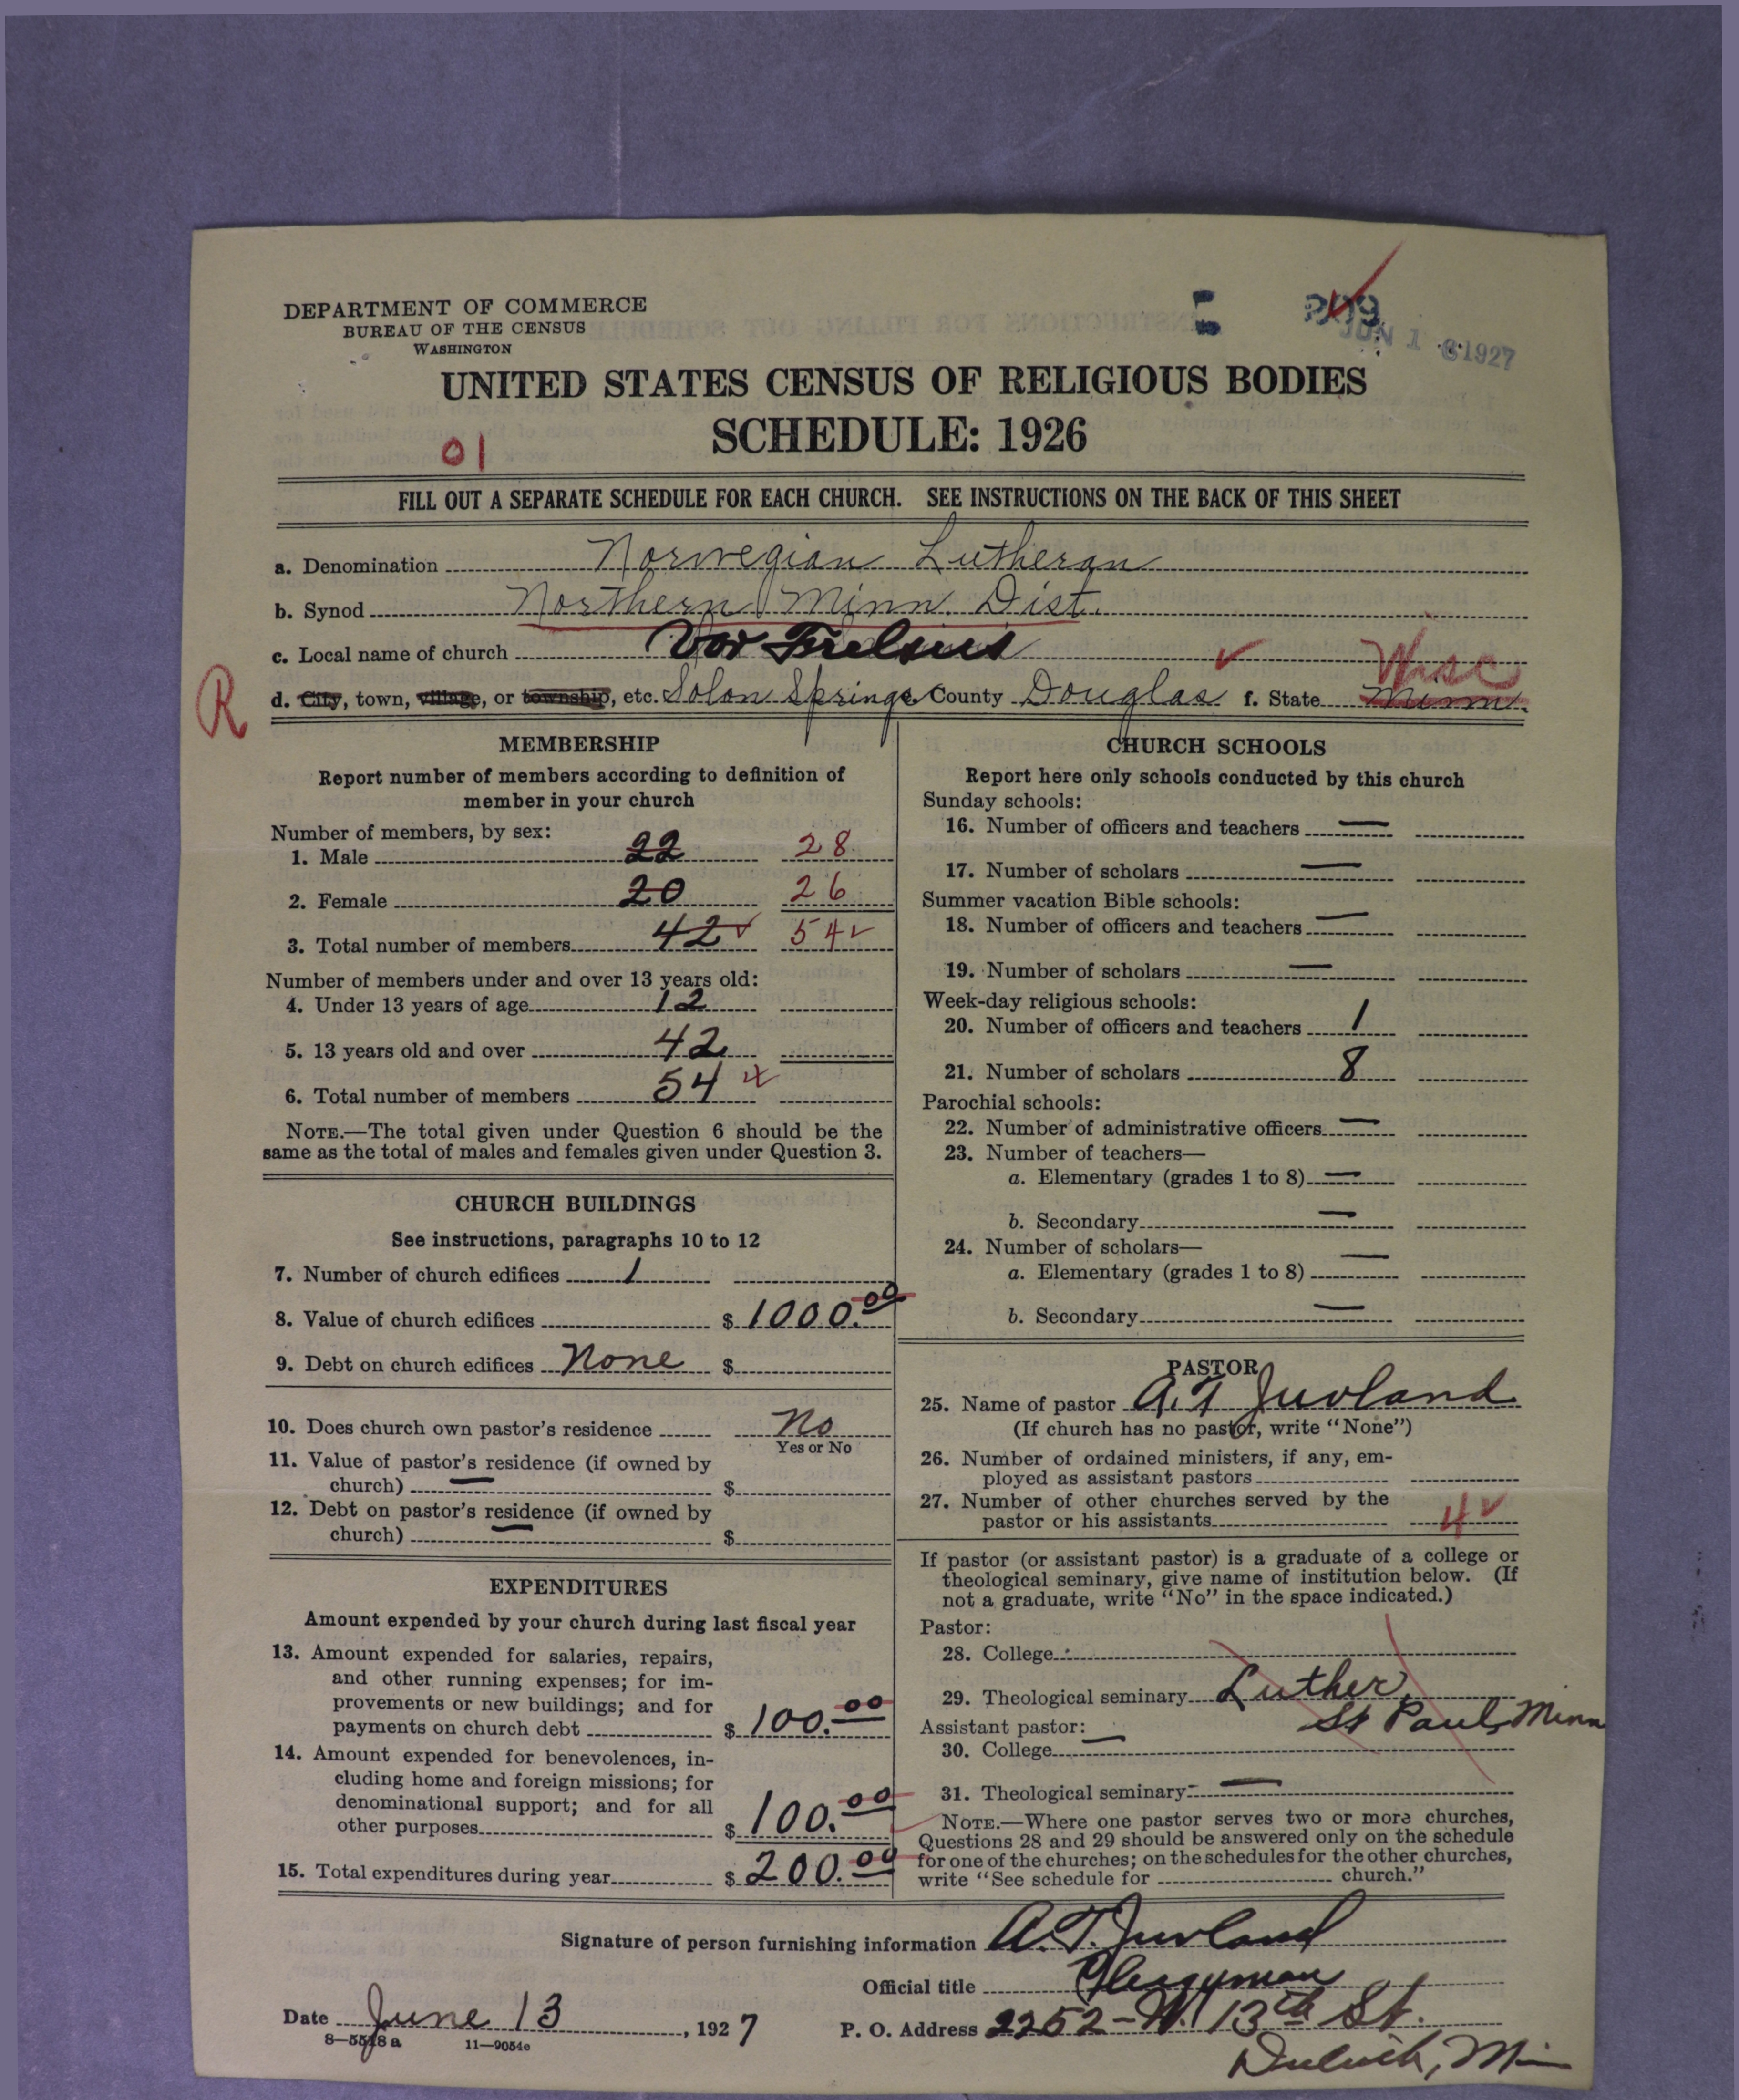 DEPARTMENT OF COMMERCE
BUREAU OF THE CENSUS
WASHINGTON
JUN 1 1927
UNITED STATES CENSUS OF RELIGIOUS BODIES
SCHEDULE: 1926
01
FILL OUT A SEPARATE SCHEDULE FOR EACH CHURCH. SEE INSTRUCTIONS ON THE BACK OF THIS SHEET
a. Denomination Norwegian Lutheran
b. Synod Northern Minn Dist.
c. Local name of church Vor Frelsers
Wisc
R
d. City, town, village, or township, etc. Solon Springs County Douglas f. State Minn.
MEMBERSHIP
Report number of members according to definition of
member in your church
Number of members, by sex:
1. Male 22 28
2. Female 20 26
3. Total number of members 42 54
Number of members under and over 13 years old:
4. Under 13 years of age 12
5. 13 years old and over 42
6. Total number of members 54
NOTE.—The total given under Question 6 should be the
same as the total of males and females given under Question 3.
CHURCH BUILDINGS
See instructions, paragraphs 10 to 12
7. Number of church edifices 1
8. Value of church edifices $ 1000.00
9. Debt on church edifices None $
10. Does church own pastor's residence No
Yes or No
11. Value of pastor's residence (if owned by
church) — $
12. Debt on pastor's residence (if owned by
church) — $
EXPENDITURES
Amount expended by your church during last fiscal year
13. Amount expended for salaries, repairs,
and other running expenses; for im-
provements or new buildings; and for
payments on church debt $ 100.00
14. Amount expended for benevolences, in-
cluding home and foreign missions; for
denominational support; and for all
other purposes $ 100.00
15. Total expenditures during year $ 200.00
CHURCH SCHOOLS
Report here only schools conducted by this church
Sunday schools:
16. Number of officers and teachers —
17. Number of scholars —
Summer vacation Bible schools:
18. Number of officers and teachers —
19. Number of scholars —
Week-day religious schools:
20. Number of officers and teachers 1
21. Number of scholars 8
Parochial schools:
22. Number of administrative officers —
23. Number of teachers—
a. Elementary (grades 1 to 8) —
b. Secondary —
24. Number of scholars—
a. Elementary (grades 1 to 8) —
b. Secondary —
PASTOR
25. Name of pastor A.T. Juvland
(If church has no pastor, write "None")
26. Number of ordained ministers, if any, em-
ployed as assistant pastors
27. Number of other churches served by the
pastor or his assistants 4
If pastor (or assistant pastor) is a graduate of a college or
theological seminary, give name of institution below. (If
not a graduate, write "No" in the space indicated.)
Pastor:
28. College
29. Theological seminary Luther,
St Paul, Minn
Assistant pastor: —
30. College
31. Theological seminary —
NOTE.—Where one pastor serves two or more churches,
Questions 28 and 29 should be answered only on the schedule
for one of the churches; on the schedules for the other churches,
write "See schedule for church."
Signature of person furnishing information A.T. Juvland
Official title Clergyman
Date June 13, 1927
P. O. Address 2252-W. 13th St.
Duluth, Min
8—5518a 11—9054e